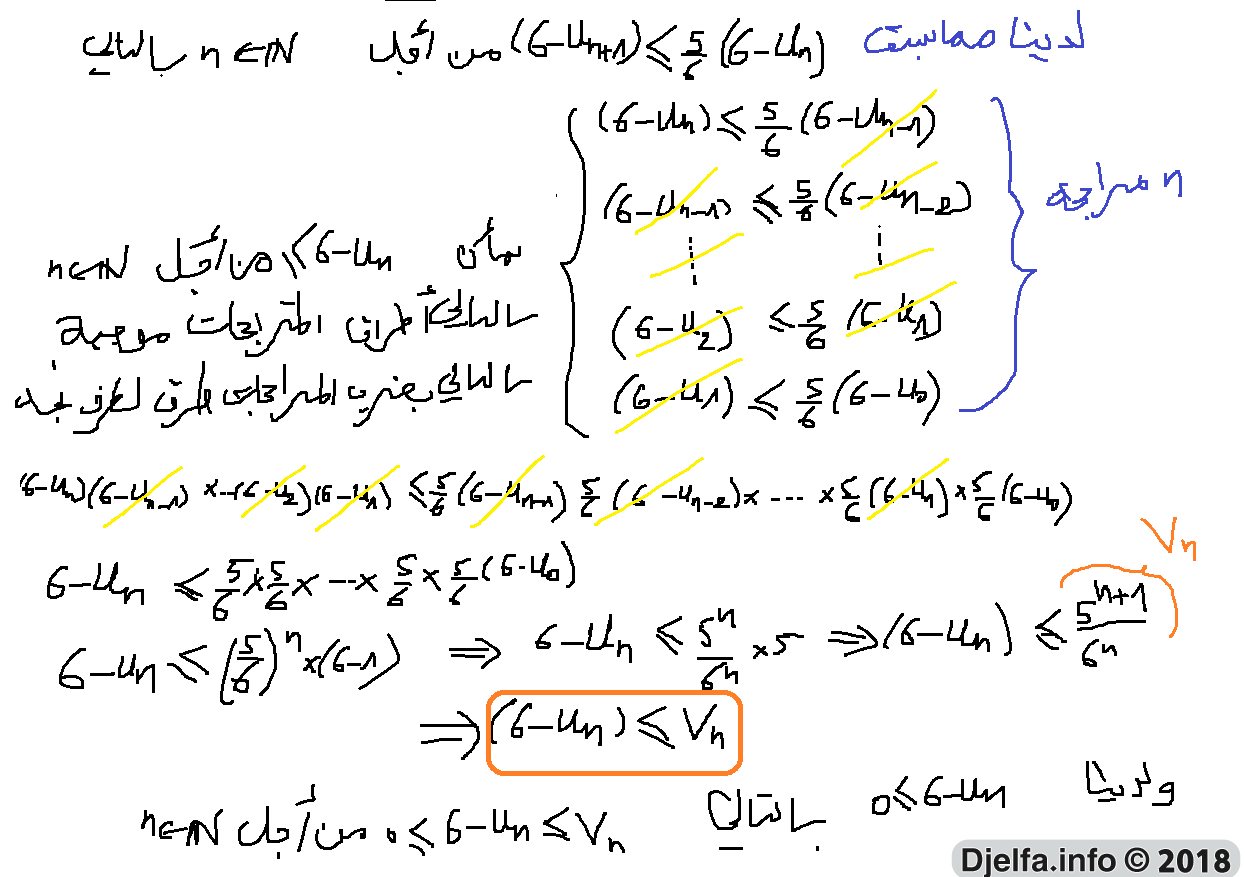 لدينا مماسبق (6-Uₙ₊₁) ≤ 5/6 (6-Uₙ) من أجل n∈ℕ بالتالي
(6-Uₙ) ≤ 5/6 (6-Uₙ₋₁)
(6-Uₙ₋₁) ≤ 5/6 (6-Uₙ₋₂)
n متراجحة
(6-U₂) ≤ 5/6 (6-U₁)
(6-U₁) ≤ 5/6 (6-U₀)
بمأن 6-Uₙ ≥ 0 من أجل n∈ℕ
بالتالي أطراف المتراجحات موجبة
بالتالي بضرب المتراجحات طرف لطرف نجد
(6-Uₙ)(6-Uₙ₋₁) ×--(6-U₂)(6-U₁) ≤ 5/6 (6-Uₙ₋₁) 5/6 (6-Uₙ₋₂)× ---- × 5/6 (6-U₁) × 5/6 (6-U₀)
6-Uₙ ≤ 5/6 × 5/6 × --- × 5/6 × 5/6 (6-U₀)
Vₙ
6-Uₙ ≤ (5/6)ⁿ × (6-1) ⟹ 6-Uₙ ≤ 5ⁿ/6ⁿ × 5 ⟹ (6-Uₙ) ≤ 5ⁿ⁺¹/6ⁿ
⟹ (6-Uₙ) ≤ Vₙ
ولدينا 0 ≤ 6-Uₙ بالتالي
0 ≤ 6-Uₙ ≤ Vₙ من أجل n∈ℕ
Djelfa.info © 2018